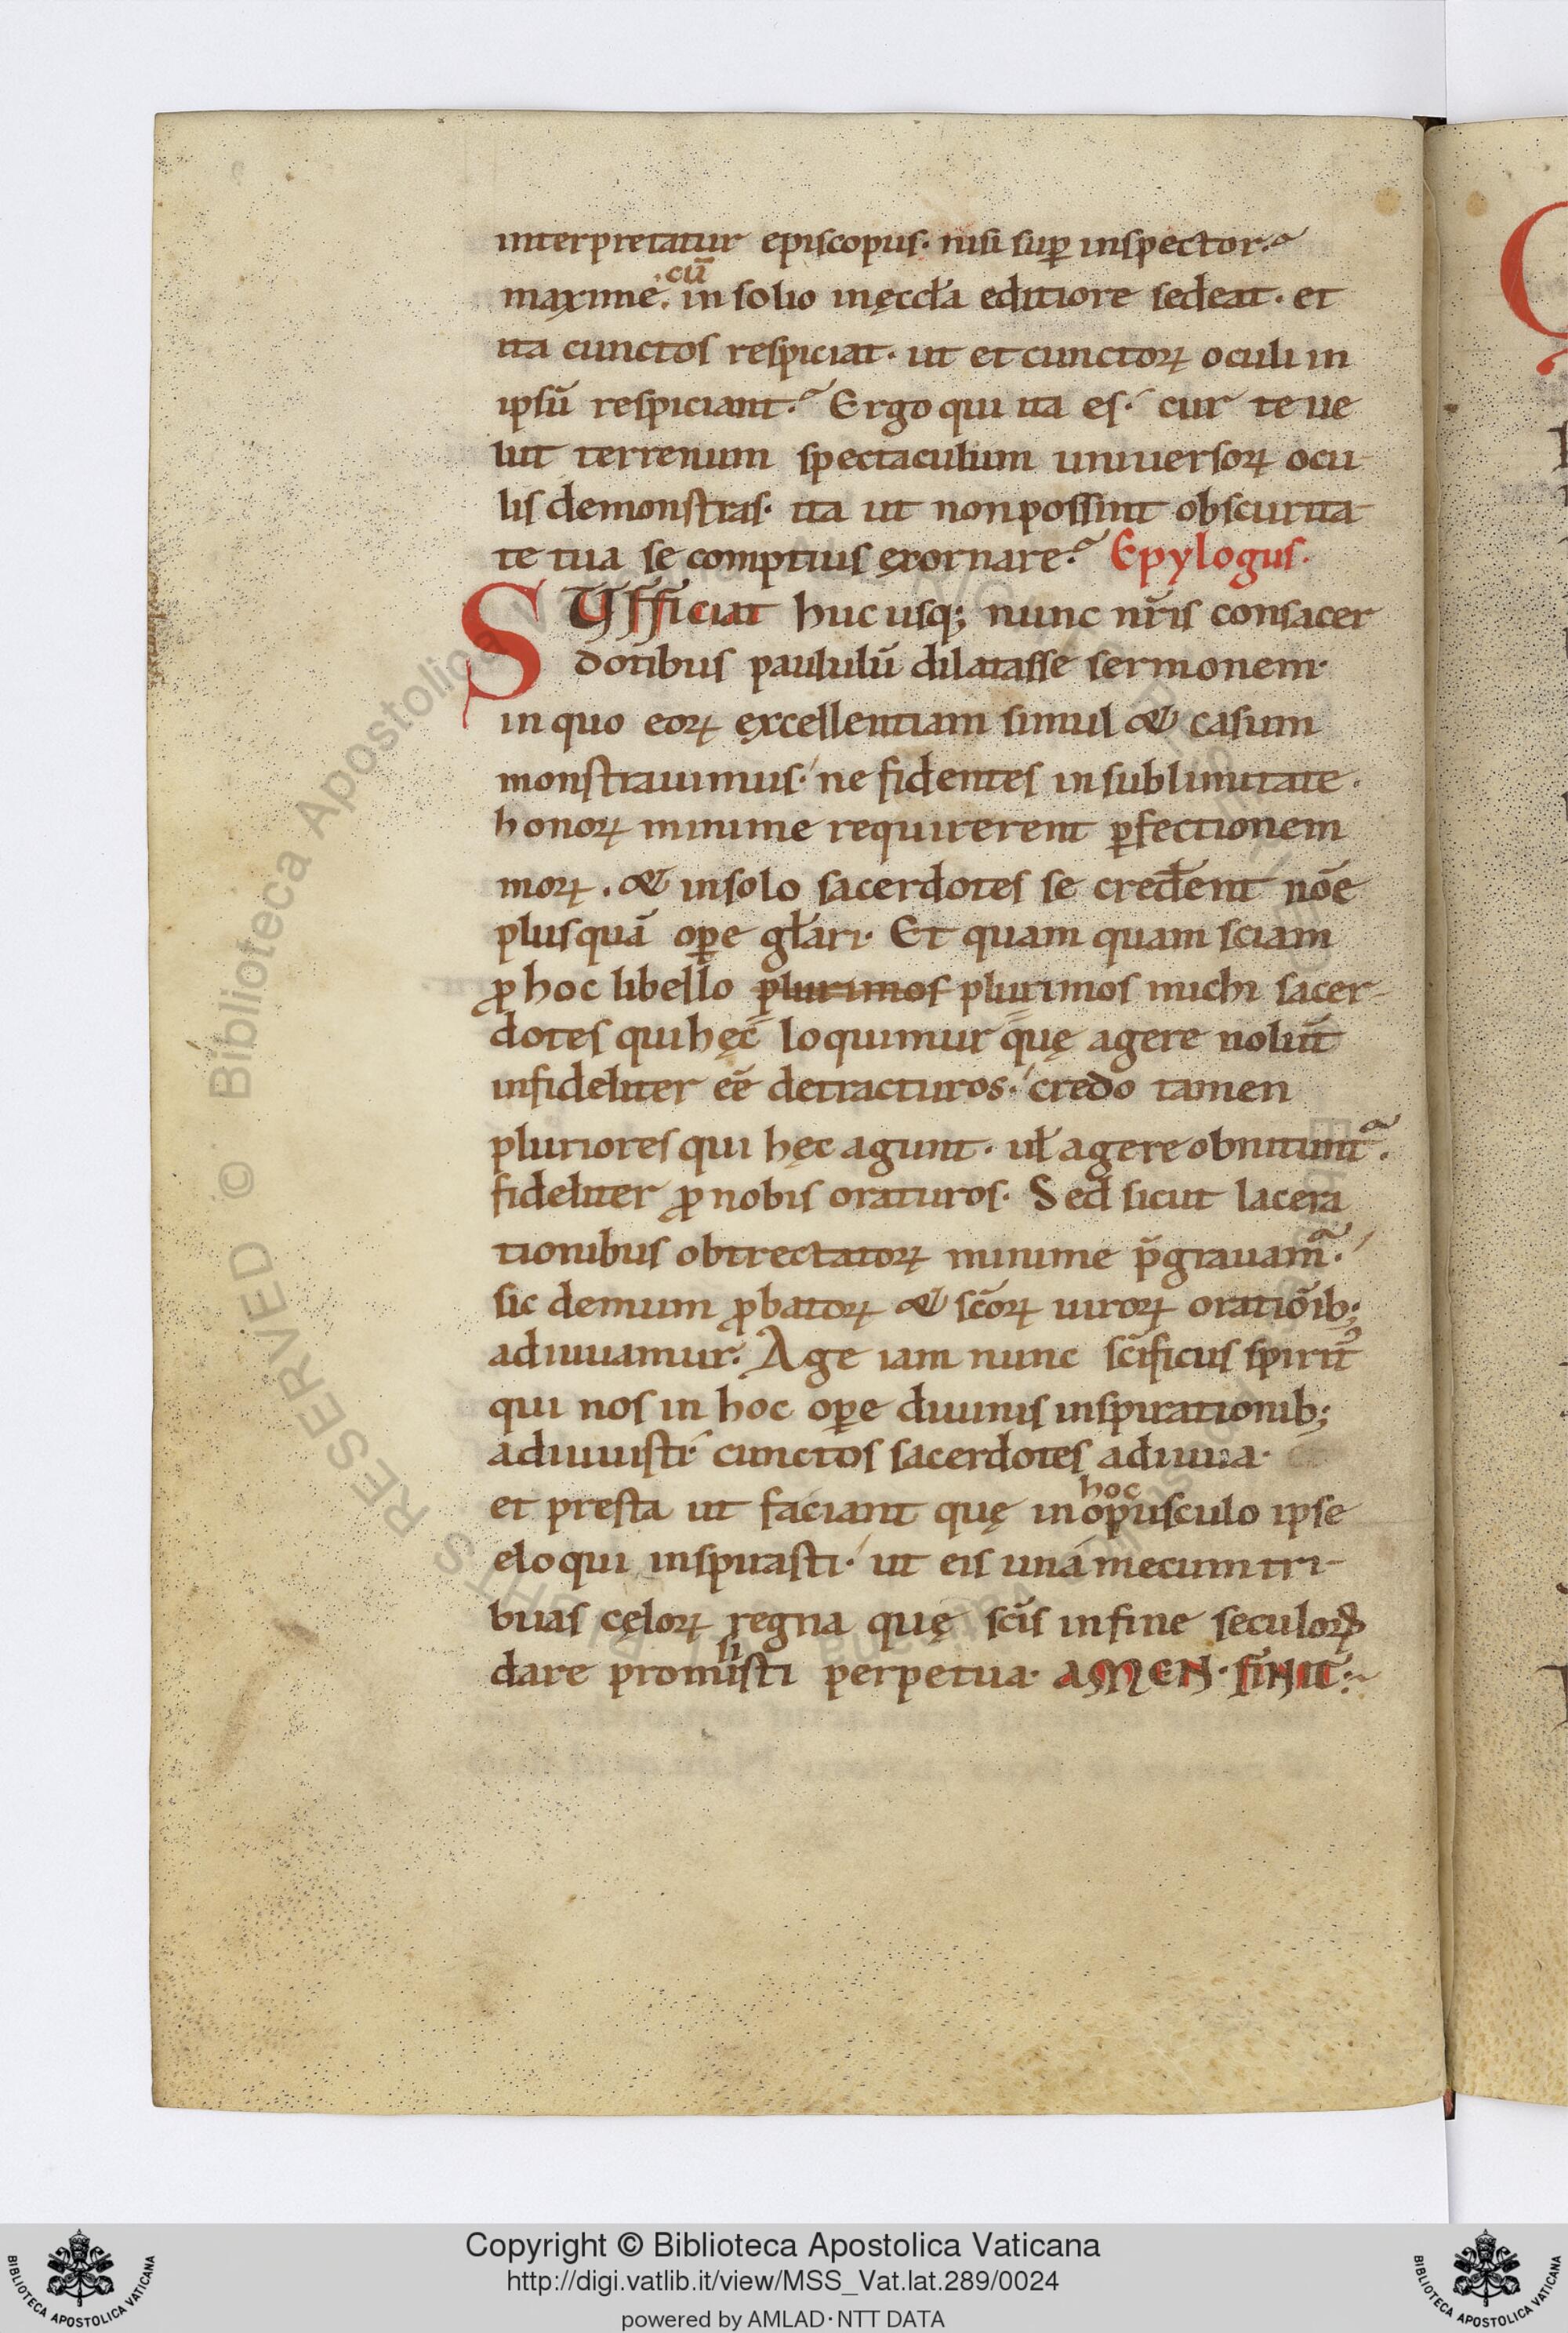 interpretatur episcopus· nisi suꝑ inspector·
cū
maxime. in solio inęccƚa editiore sedeat· et
ita cunctos respiciat· ut et cunctoꝝ oculi in
ipsū respiciant· Ergo qui ita es· cur te ue
lut terrenum spectaculum uniuersoꝝ ocu
lis demonstras· ita ut non possint obscurita
te tua se comptius exornare· Epylogus·
SUfficiat huc usq; nunc nr̄is consacer
dotibus paululū dilatasse sermonem·
in quo eoꝝ ęxcellentiam simul & casum
monstrauimus· ne fidentes in sublimitate·
honoꝝ minime requirerent ꝑfectionem
moꝝ. & in solo sacerdotes se credent̄ nōe
plusquā oꝑe gƚari· Et quam quam sciam
ꝓ hoc libello plurimos plurimos michi sacer-
dotes qui hęc loquimur quę agere nolunt̄
infideliter eē detracturos· credo tamen
pluriores qui hęc agunt· uƚ agere obnitunt·
fideliter ꝓ nobis oraturos· Sed sicut lacera
tionibus obtrectatoꝝ minime p̄grauam·
sic demum ꝓbatoꝝ & scōꝝ uiroꝝ oratiōib;
adiuuamur· Age iam nunc scīficus spirit᾽
qui nos in hoc oꝑe diuinis inspirationib;
adiuuisti· cunctos sacerdotes adiuua·
hoc
et presta ut faciant quę in opusculo ipse
eloqui inspirasti· ut eis unā mecum tri-
buas cęloꝝ regna quę scīs in fine seculoꝝ
si
dare promisti perpetua· AMEN· FINIT
Copyright © Biblioteca Apostolica Vaticana
http://digi.vatlib.it/view/MSS_Vat.lat.289/0024
powered by AMLAD·NTT DATA
BIBLIOTECA APOSTOLICA VATICANA
BIBLIOTECA APOSTOLICA VATICANA